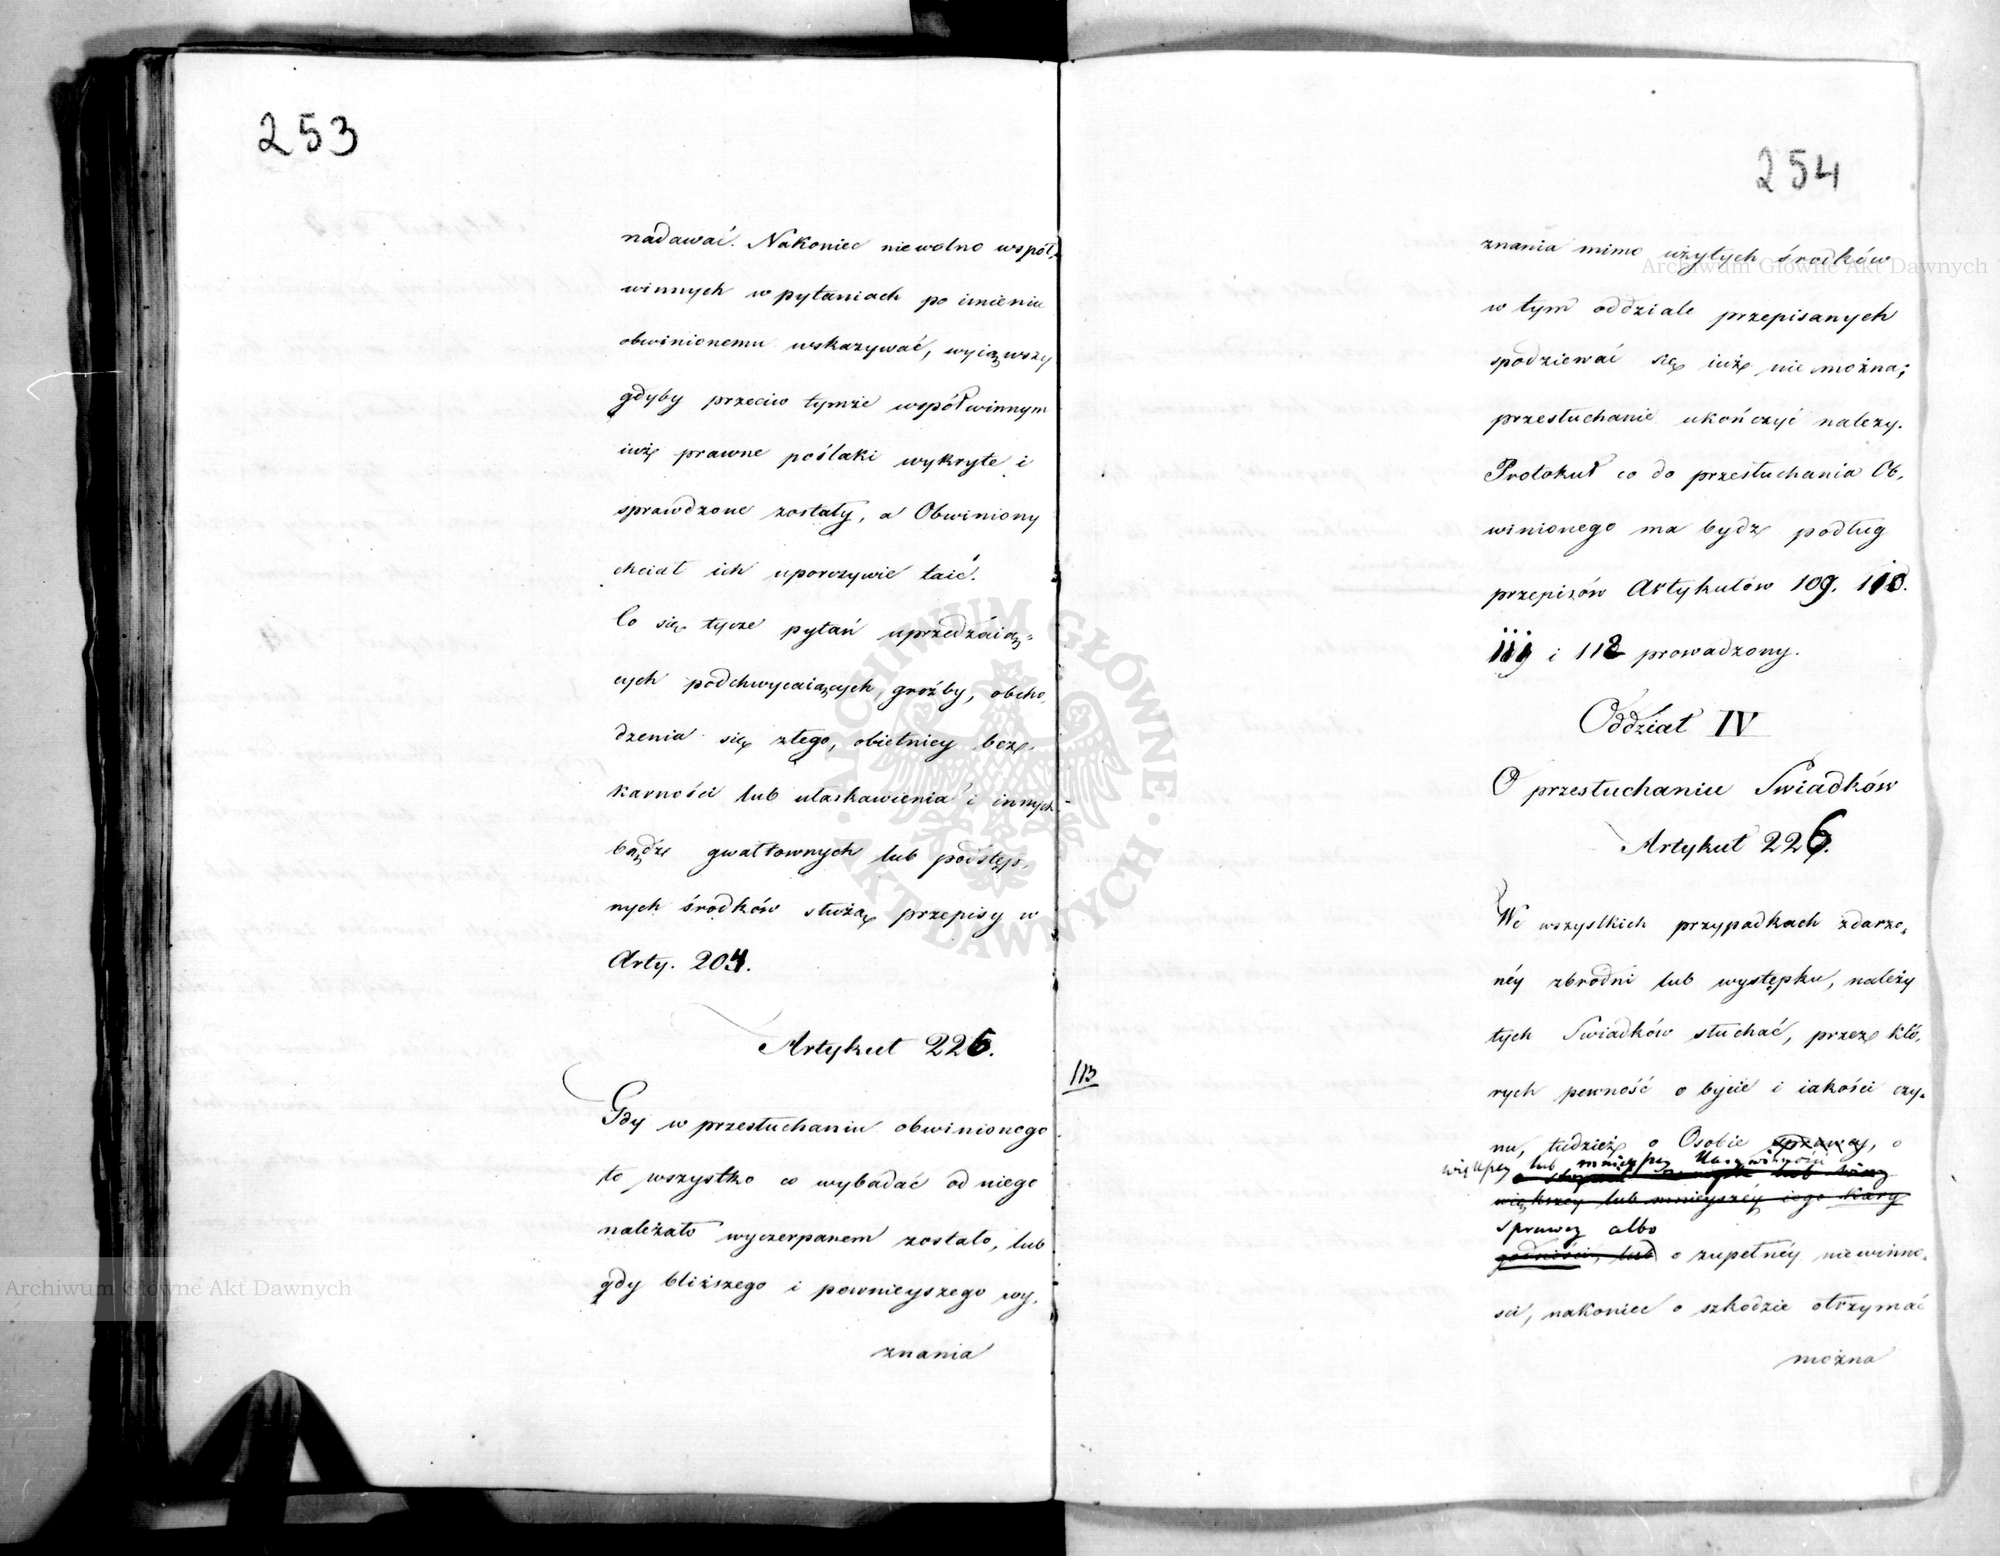 253
nadawać. Nakoniec niewolno współ,
winnych w pytaniach po imieniu
obwinionemu wskazywać, wyiąwszy
gdyby przeciw tymże współwinnym
iuż prawne poślaki wykryte i
sprawdzone zostały, a Obwiniony
chciał ich uporczywie taić.
Co się tycze pytań uprzedzaią=
cych podchwycaiących, groźby, obcho,
dzenia się złego, obietnicy bez,
karności lub ułaskawienia i innych
bądź gwałtownych lub podstęp,
nych środków służą przepisy w
Arty. 204.
Artykuł 225.
Gdy w przesłuchaniu obwinionego
to wszystko co wybadać od niego
należało wyczerpanem zostało, lub
gdy bliższego i pewnieyszego wy,
znania
254
znania mimo użytych środków
w tym oddziale przepisanych
spodziewać się iuż nie można;
przesłuchanie ukończyć należy.
Protokuł co do przesłuchania Ob,
winionego ma bydź podług
przepisów Artykułów 109. 110.
111 i 112 prowadzony.
Oddział IV
O przesłuchaniu Swiadków
Artykuł 226.
We wszystkich przypadkach zdarzo,
néy zbrodni lub występku, należy
tych Swiadków słuchać, przez któ,
113
rych pewność o bycie i iakości czy,
nu, tudzież o Osobie sprawcy, o
większey lub mnieyszey
większey lub mnieyszéy iego kary
sprawcy albo
godności, lub o zupełnéy niewinno,
ści, nakoniec o szkodzie otrzymać
można
Archiwum Główne Akt Dawnych
Archiwum Główne Akt Dawnych
ARCHIWUM GŁÓWNE · AKT DAWNYCH ·